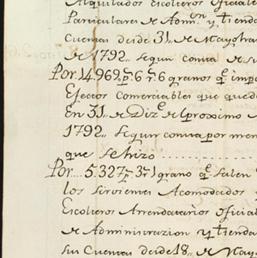 Alquilados Escoteros Oficiale
Particulares de Admon y tienda
Cuentas desde 31 de Mayo hta
de 1792. Segun consta de
Por 14.969 ps 6 r 6 granos q. e impo
Efectos comerciables que qued
En 31 de Dize del proximo
1792. Segun consta por men
que se hizo
Por 5.327 ps 3 r 1 grano q. e salen
los sirvientes Acomodados y
Escoteros Arrendatarios oficial
de Administrazion y tienda
sus Cuentas desde 18 de Mayo